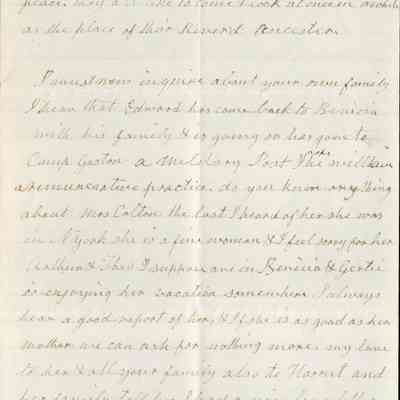 peace. they all like to come & look at once in awhile
as the place of their Revered Ancestor.
I must now inquire about your own family
I hear that Edward has come back to Benicia
with his family & is going or has gone to
Camp Gaston a Melatary Post I hope he will have
a remunerative practice. do you know anything
about Mrs Colton the last I heard of her she was
in N York she is a fine woman & I feel sorry for her
Arthur & I suppose are in Benicia & Gertie
is enjoying her vacation somewhere. I always
hear a good report of her, & If she is as good as her
mother we can ask for nothing more. my love
to her & all your family also to Harriet and
her family tell